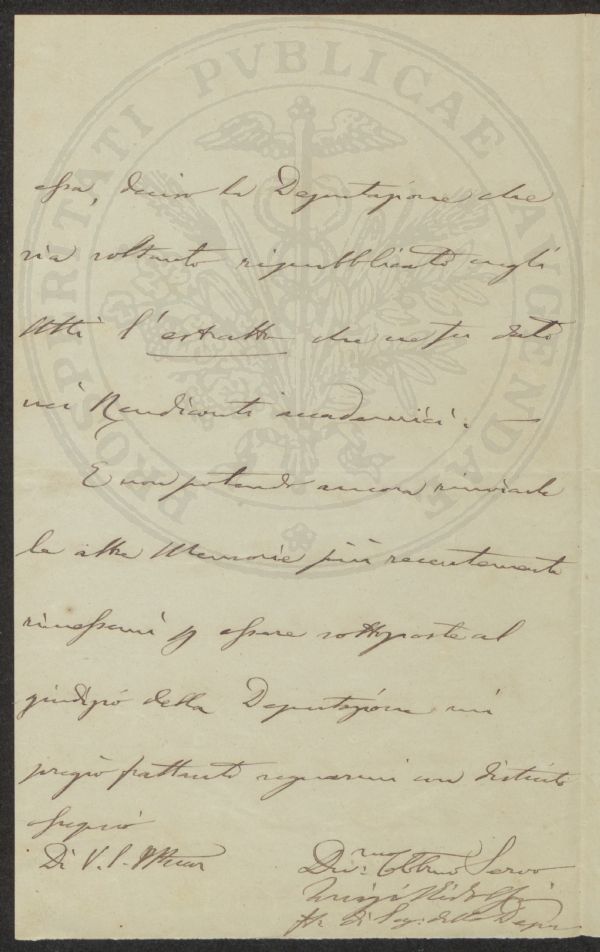 PROSPERITATI PVBLICAE AVGENDAE
essa, deciso la Deputazione che
sia soltanto ripubblicato negli
Atti l'estratto che ne fu dato
nei Rendiconti accademici. —
E non potendo ancora rinviarle
le altre Memorie più recentemente
rimessemi p essere sottoposte al
giudizio della Deputazione mi
pregio frattanto segnarmi con distinto
ossequio
Di V. S. Illma
Dev.mo Obbmo Servo
Luigi Ridolfi
ff. di Seg. della Depne